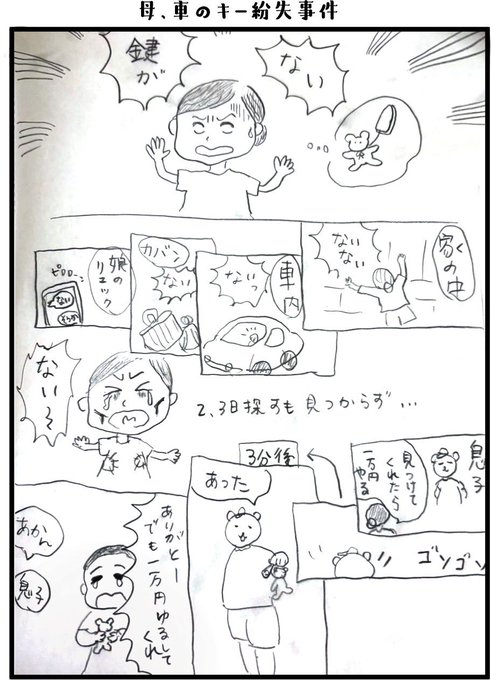 母、車のキー紛失事件
鍵が
ない
家の中
ない
ない
ない
車内
ないっ
カバン
ない
娘の
リュック
ピロローン
ない
ない〜
2、3日探すも見つからず…
息子
見つけて
くれたら
一万円
やる
ゴソゴソ
3分後
あった
ありがとー
でも一万円ゆるして
くれ
あかん
息子